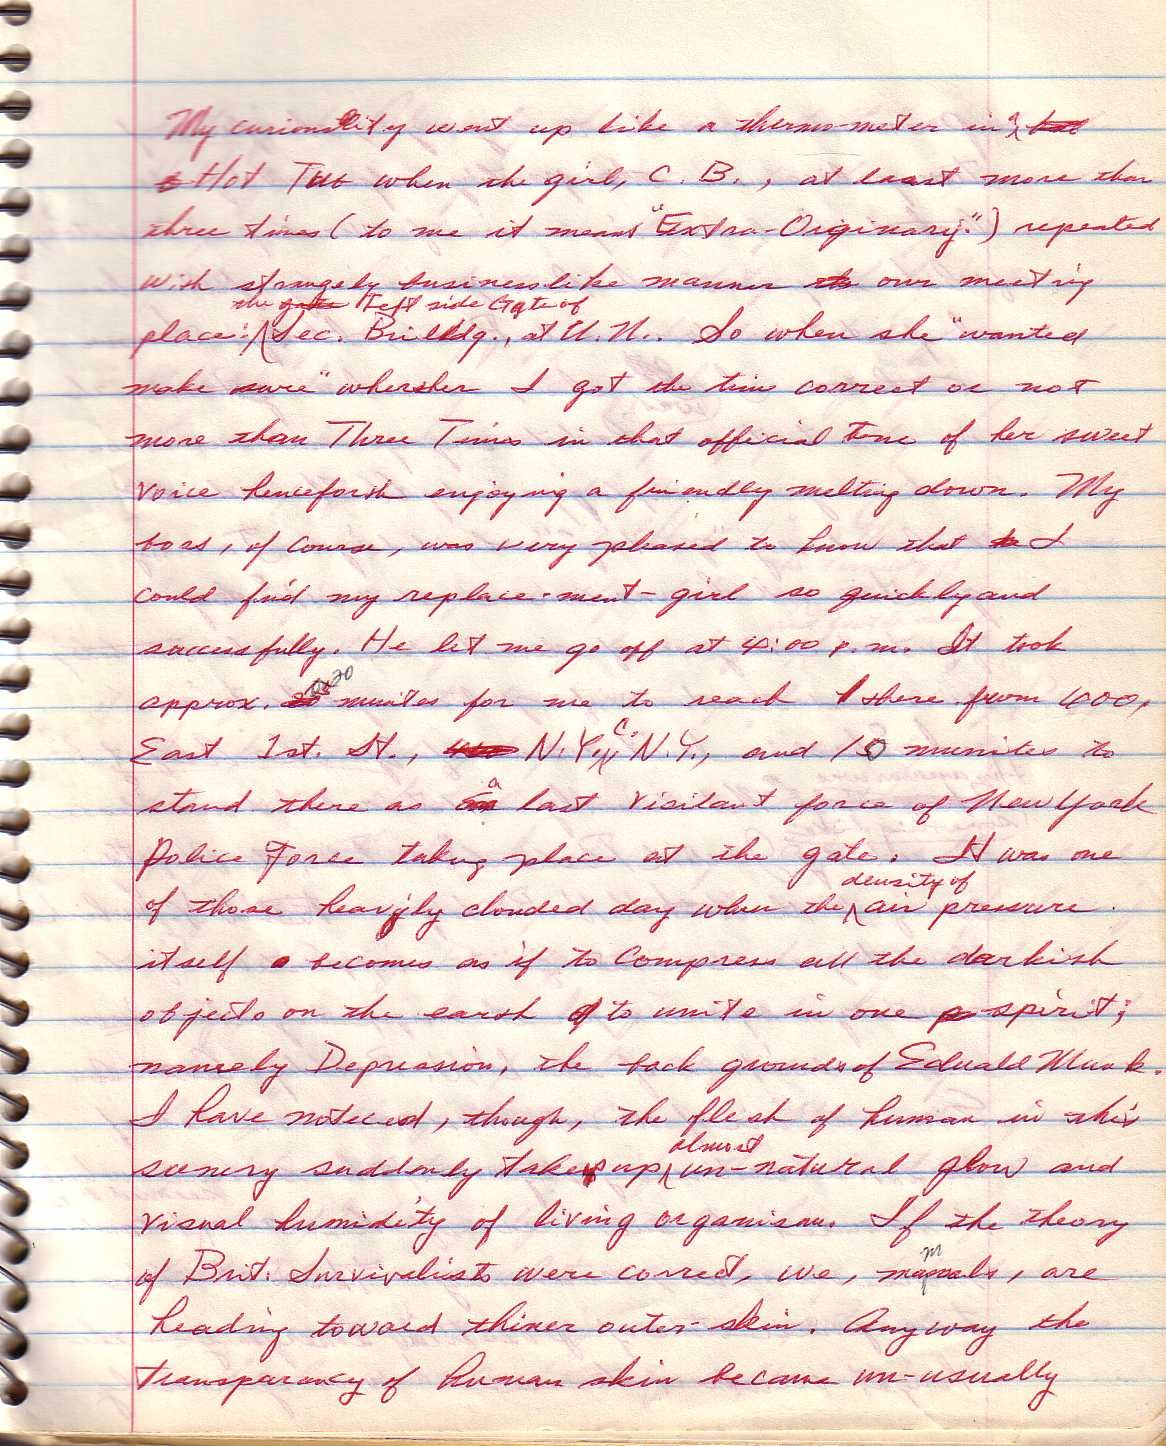 My curiousity went up like a thermo-meter in a
Hot Tub when the girl, C. B., at least more than
three times (to me it means "Extra-Originary.") repeated
with strangely businesslike manner our meeting
the Left side Gate of
place: Sec. Buildg., at U.N.. So when she "wanted
make sure" whersher I got the time correct or not
more than Three Times in that official tone of her sweet
voice henceforth enjoying a friendly melting down. My
boss, of course, was very pleased to know that I
could find my replace-ment-girl so quickly and
successfully. He let me go off at 4:00 p.m. It took
approx. 20 munites for me to reach there from 400,
East 1st. St., N.Y. C. N.Y., and 10 munites to
stand there as a last visilant force of New York
Police Force taking place at the gate. It was one
density of
of those heavyly clouded day when the air pressure
itself becomes as if to compress all the darkish
objects on the earsh to unite in one spirit;
namely Depression, the back grounds of Eduald Munk.
I have noteced, though, the flesh of human in this
almost
scenery suddenly take up un-natural glow and
visual humidity of living organism. If the theory
of Brit. Survivalists were correct, we, mamals, are
heading toward thiner outer-skin. Anyway the
transparancy of human skin became un-usually